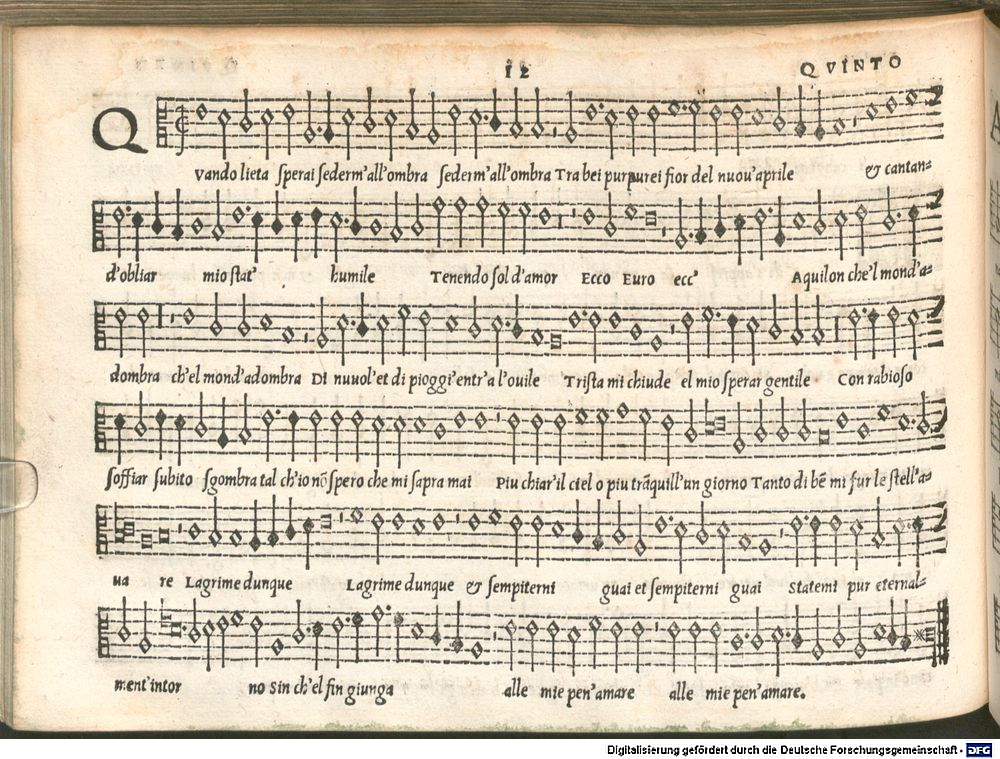 12
QVINTO
Q
vando lieta sperai sederm'all'ombra sederm'all'ombra Tra bei purpurei fior del nuou'aprile & cantan-
d'obliar mio stat' humile Tenendo sol d'amor Ecco Euro ecc' Aquilon che'l mond'a-
dombra ch'el mond'adombra Di nuuol'et di pioggi'entr'a l'ouile Trista mi chiude el mio sperar gentile Con rabioso
soffiar subito sgombra tal ch'io nõ spero che mi sapra mai Piu chiar'il ciel o piu trãquill'un giorno Tanto di bẽ mi fur le stell'a-
ua re Lagrime dunque Lagrime dunque & sempiterni guai et sempiterni guai statemi pur eternal-
ment'intor no sin ch'el fin giunga alle mie pen'amare alle mie pen'amare.
Digitalisierung gefördert durch die Deutsche Forschungsgemeinschaft - DFG